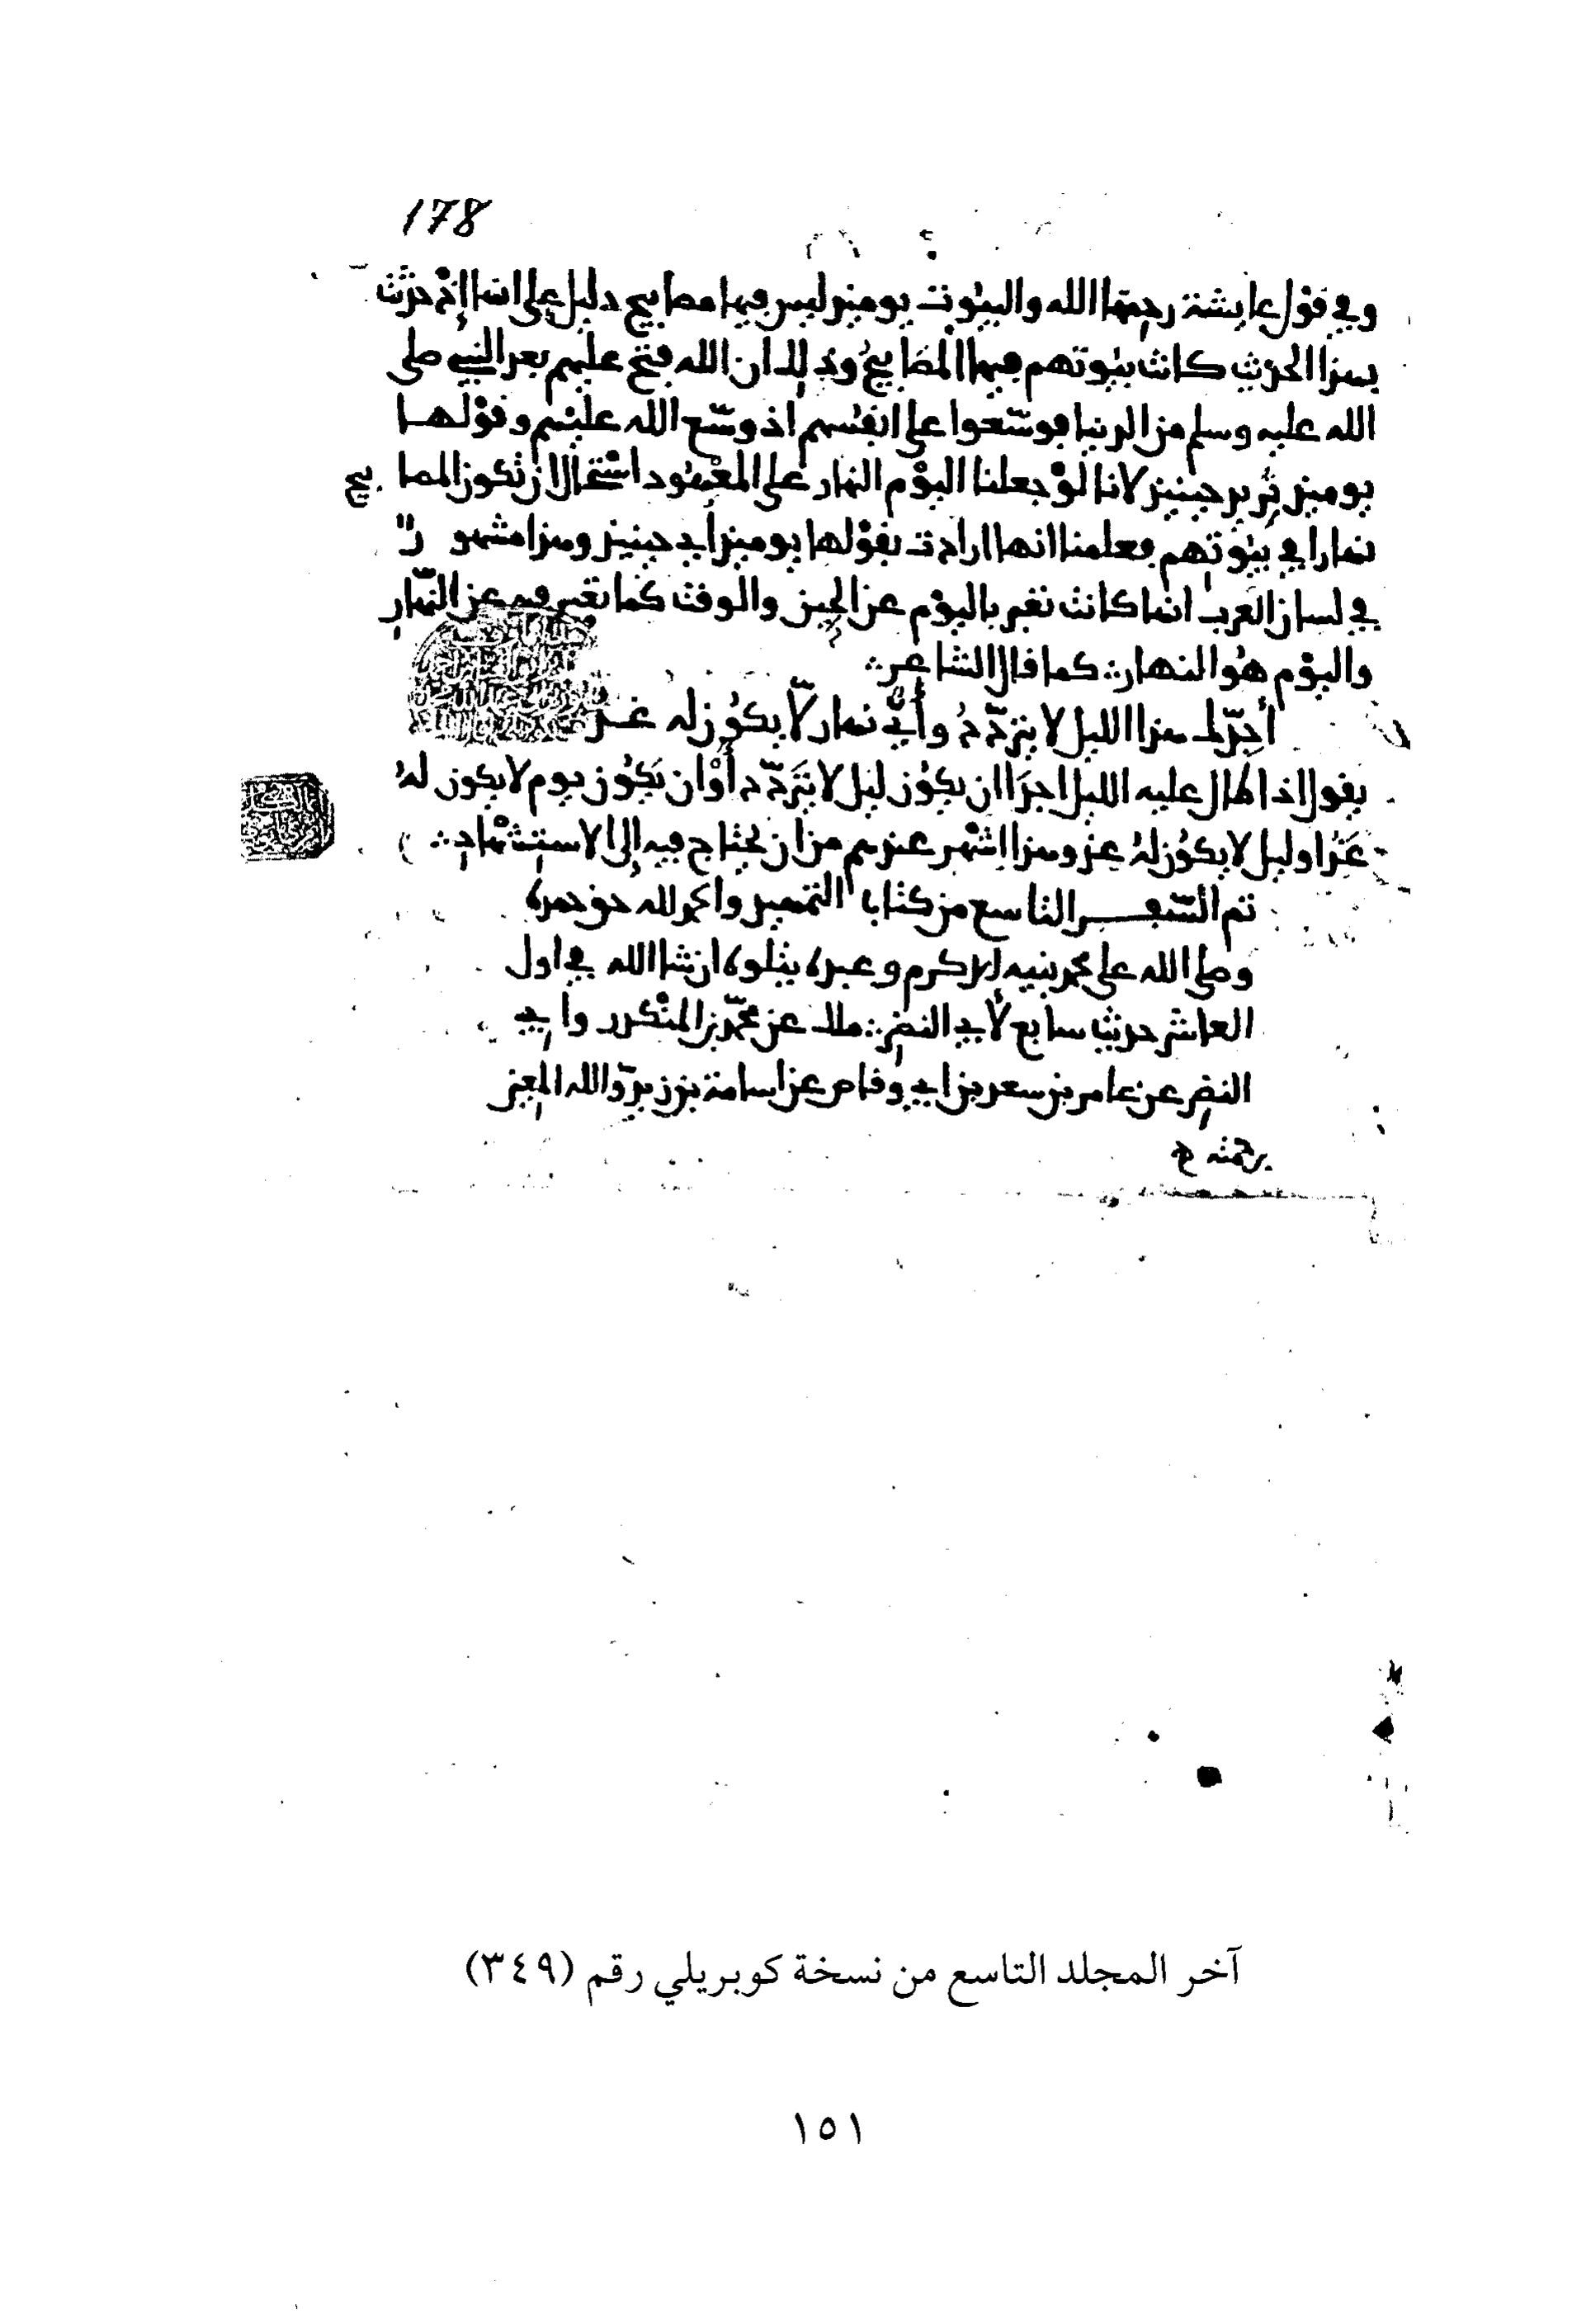 178
وفي قول عايشة رحمها الله والبيوت يوميذ ليس فيها مصابيح دليل على انها إذ حدثت
بهذا الحديث كانت بيوتهم فيها المصابيح وذلك ان الله فتح عليهم بعد النبي صلى
الله عليه وسلم من الدنيا فوسّعوا على انفسهم اذ وسّع الله عليهم وقولهـا
يوميذ تريد حينيذ لانا لوْ جعلنا اليوْم النهار على المعهود استحال ان تكون المصابيح
نهارا في بيوتهم فعلمنا انها ارادت بقولها يوميذ أي حينيذ وهذا مشهورٌ
في لسان العرب انها كانت تعبر باليوْم عن الحين والوقت كما تعبر به عن النّهار
واليوْم هو النهار كما قال الشاعر
أجِدّك هذا الليل لا يتردّدُ وأيّ نهار لا يكون له غـد
يقول اذا طال عليه الليل اجدا ان يكون ليل لا يتردّد أوْ ان يكون يوم لا يكون له
غد او ليل لا يكون له غد وهذا اشهر عندهم من ان يحتاج فيه إلى الاستشهاد
تم السّفـر التاسع من كتاب التمهيد والحمد لله حق حمده
وصلى الله على محمد نبيه الاكرم وعبده يتلوه ان شا الله في اول
العاشر حديث سابع لأبي النضر ملك عن محمّد بن المنكدر وأبي
النضر عن عامر بن سعد بن ابي وقاص عن اسامة بن زيد والله المعين
برحمته
آخر المجلد التاسع من نسخة كوبريلي رقم (٣٤٩)
١٥١